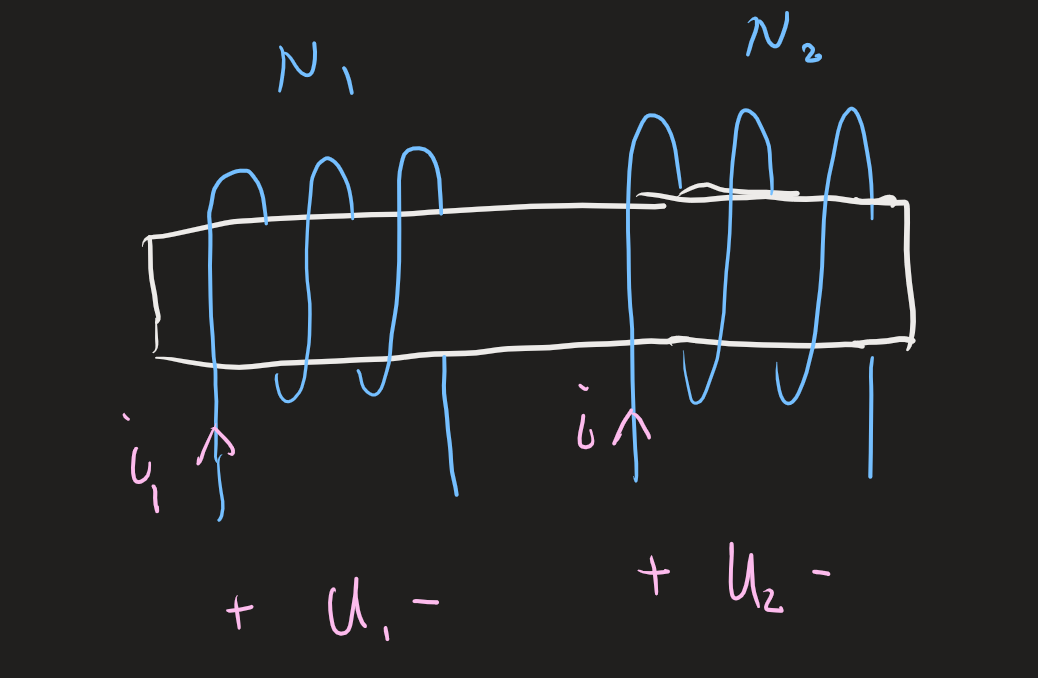 N₁ N₂
i₁ i
+ u₁ - + u₂ -